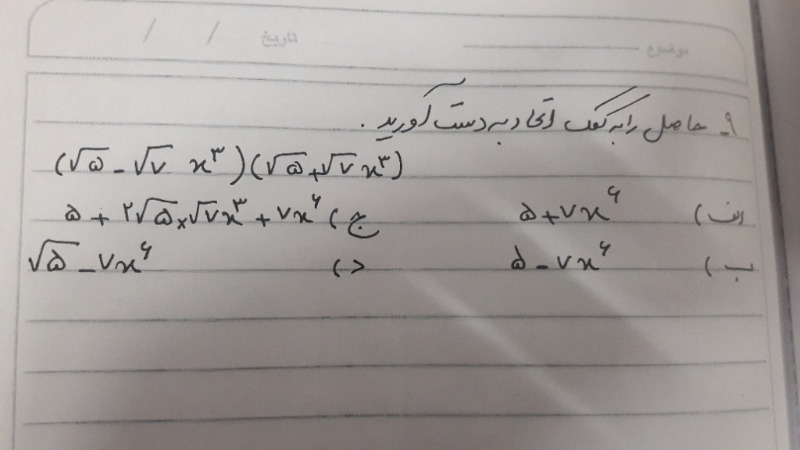 موضوع تاریخ / /
۹ـ حاصل را به کمک اتحاد به دست آورید.
(√۵ - √۷ x^۳)(√۵ + √۷ x^۳)
الف) ۵ + ۷x^۶ ج) ۵ + ۲√۵ × √۷x^۳ + ۷x^۶
ب) ۵ - ۷x^۶ د) √۵ - ۷x^۶